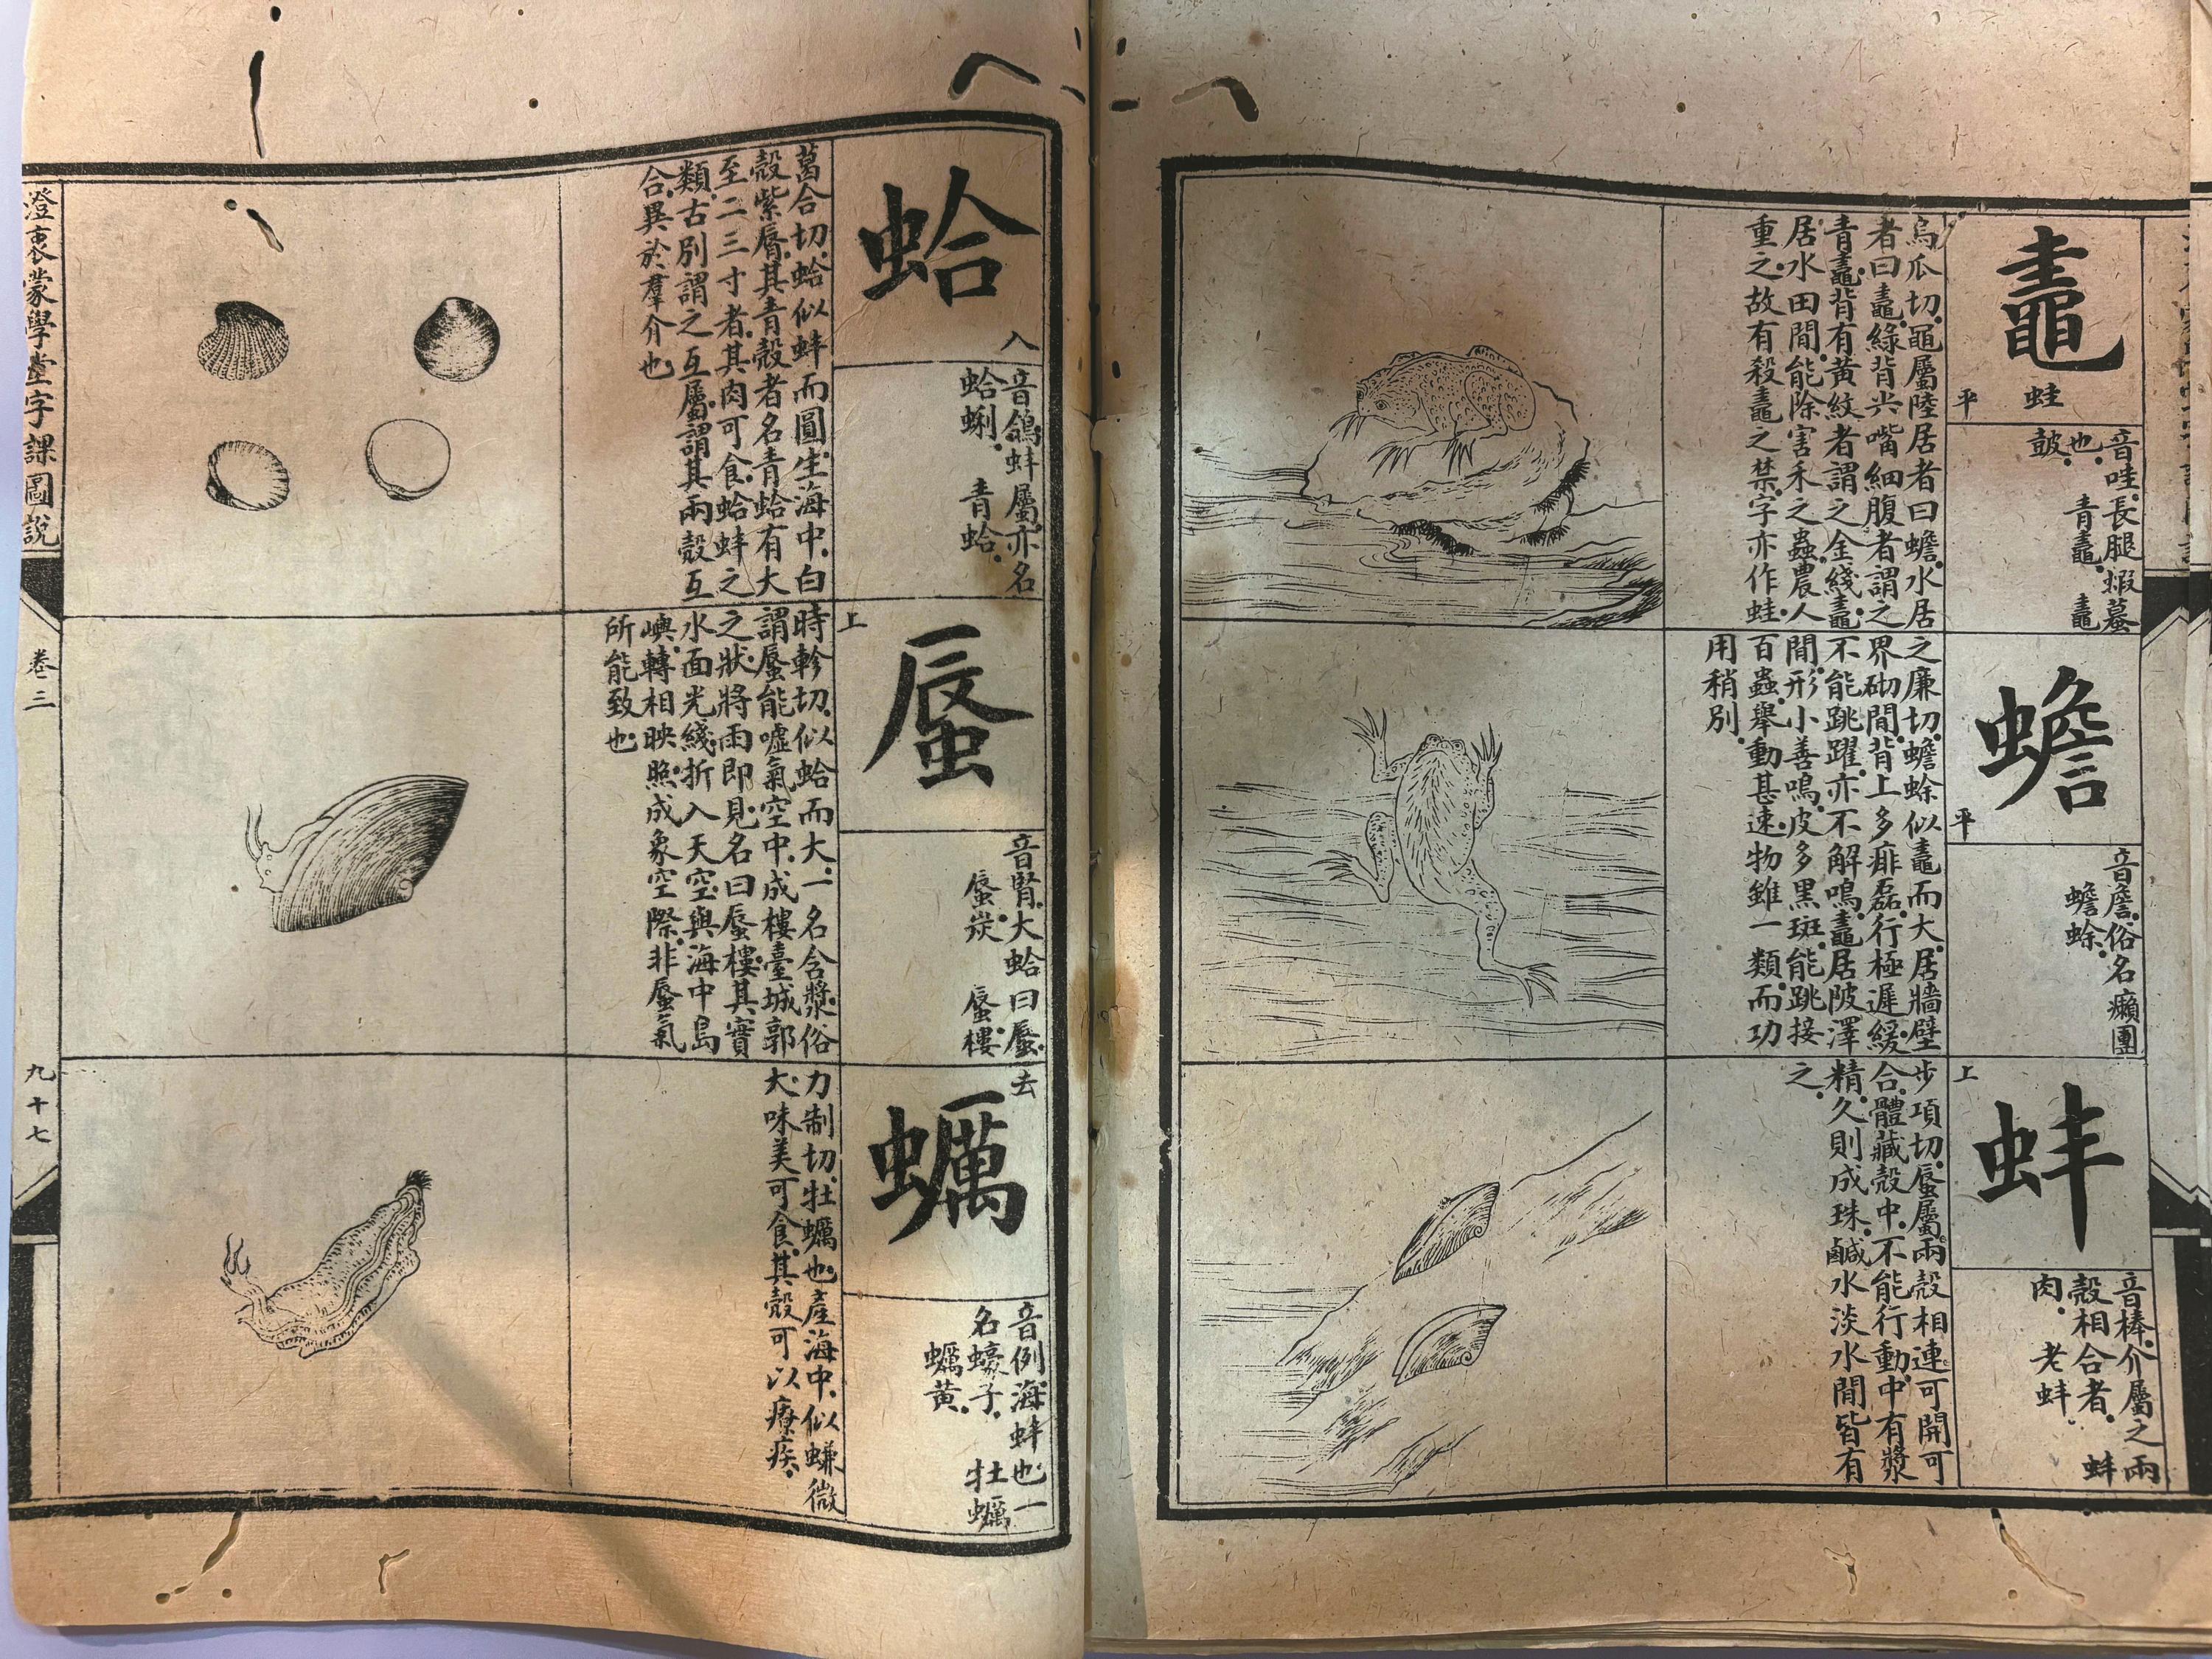 鼃
蛙
平
音哇.長腿蝦蟇
也.　青鼃.　鼃
鼓.
烏瓜切.黽屬陸居者曰蟾.水居
者曰鼃.綠背尖嘴細腹者謂之
青鼃.背有黃紋者謂之金綫鼃.
居水田間.能除害禾之蟲.農人
重之.故有殺鼃之禁.字亦作蛙.
蟾
平
音詹.俗名癩團
蟾蜍.
之廉切.蟾蜍似鼃而大.居牆壁
界砌間.背上多痱磊.行極遲緩.
不能跳躍.亦不解鳴.鼃居陂澤
間.形小善鳴.皮多黑斑.能跳接
百蟲.舉動甚速.物雖一類.而功
用稍別.
蚌
上
音棒.介屬之兩
殼相合者.　蚌
肉.　老蚌.
步項切.蜃屬.兩殼相連.可開可
合.體藏殼中.不能行動.中有漿
精.久則成珠.鹹水淡水間皆有
之.
蛤
入
音鴿.蚌屬.亦名
蛤蜊.　青蛤.
葛合切.蛤似蚌而圓.生海中.白
殼紫脣.其青殼者名青蛤.有大
至二三寸者.其肉可食.蛤蚌之
類.古別謂之互屬.謂其兩殼互
合.異於羣介也.
蜃
上
音腎.大蛤曰蜃.
蜃炭.　蜃樓.
時軫切.似蛤而大.一名含漿.俗
謂蜃能噓氣空中.成樓臺城郭
之狀.將雨即見.名曰蜃樓.其實
水面光綫.折入天空.與海中島
嶼.轉相映照.成象空際.非蜃氣
所能致也.
蠣
去
音例.海蚌也.一
名蠔子.　牡蠣
蠣黃.
力制切.牡蠣也.產海中.似蠊微
大.味美可食.其殼可以療疾.
澄衷蒙學堂字課圖說
卷三
九十七